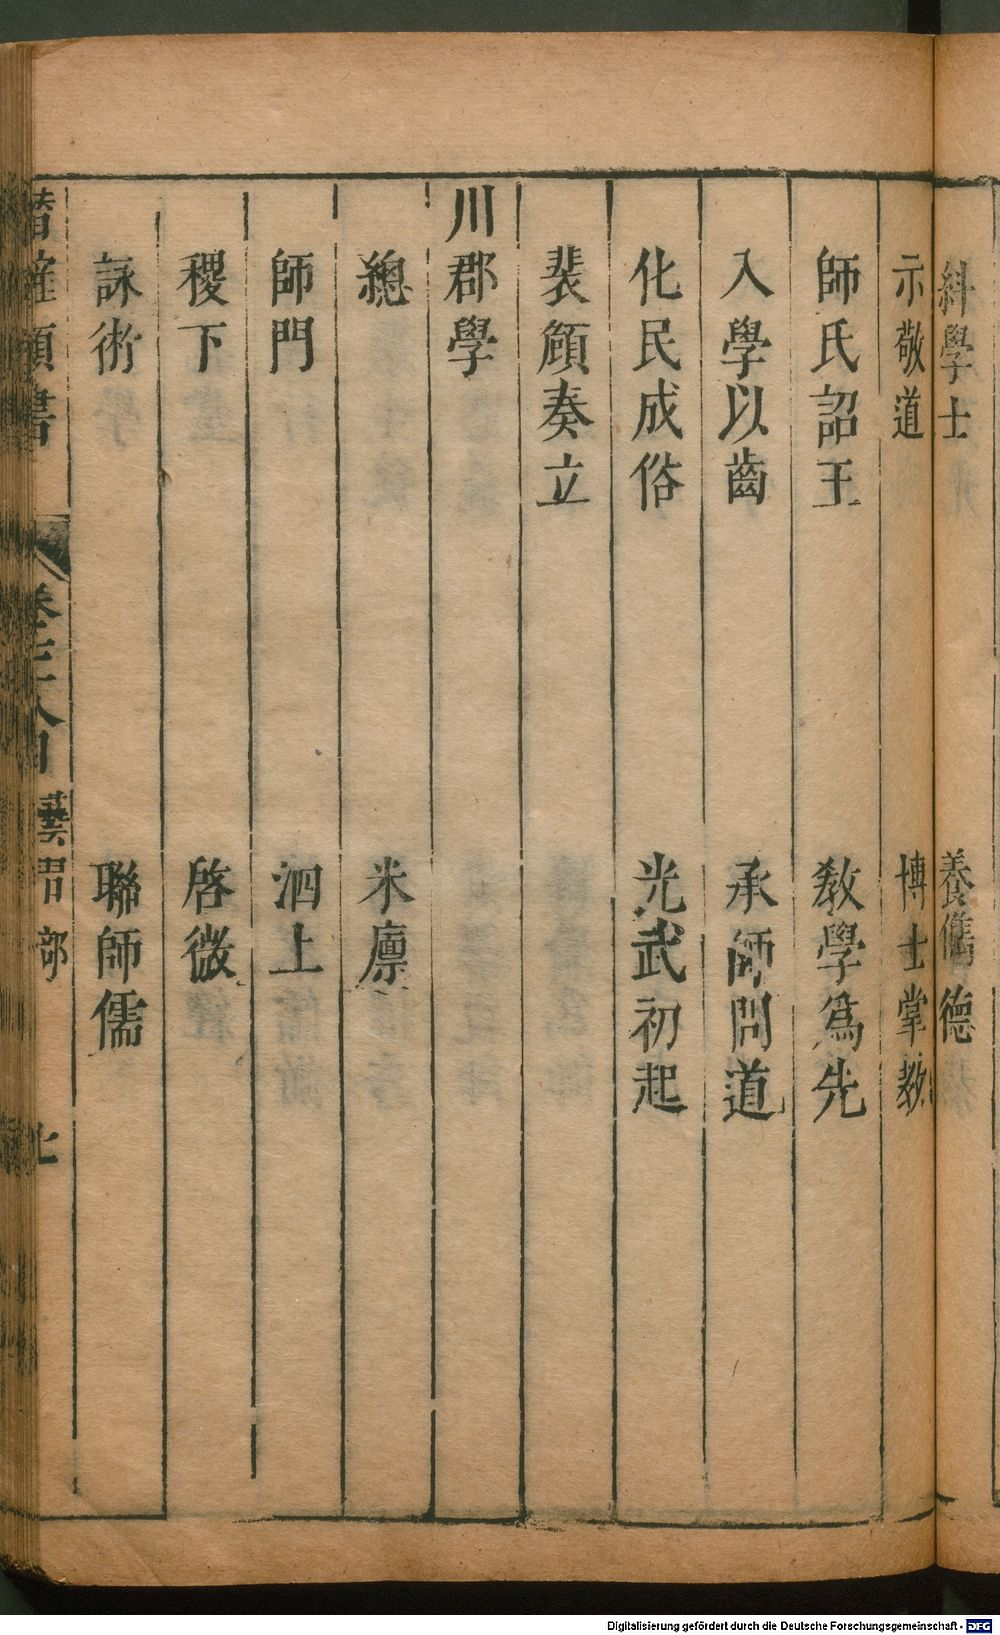 糾學士　養儁德
示敬道　博士掌教
師氏詔王　教學爲先
入學以齒　承師問道
化民成俗　光武初起
裴頠奏立
川郡學
總　米廩
師門　泗上
稷下　啓微
詠術　聯師儒
潛確類書　卷　目　藝習部　七
Digitalisierung gefördert durch die Deutsche Forschungsgemeinschaft - DFG